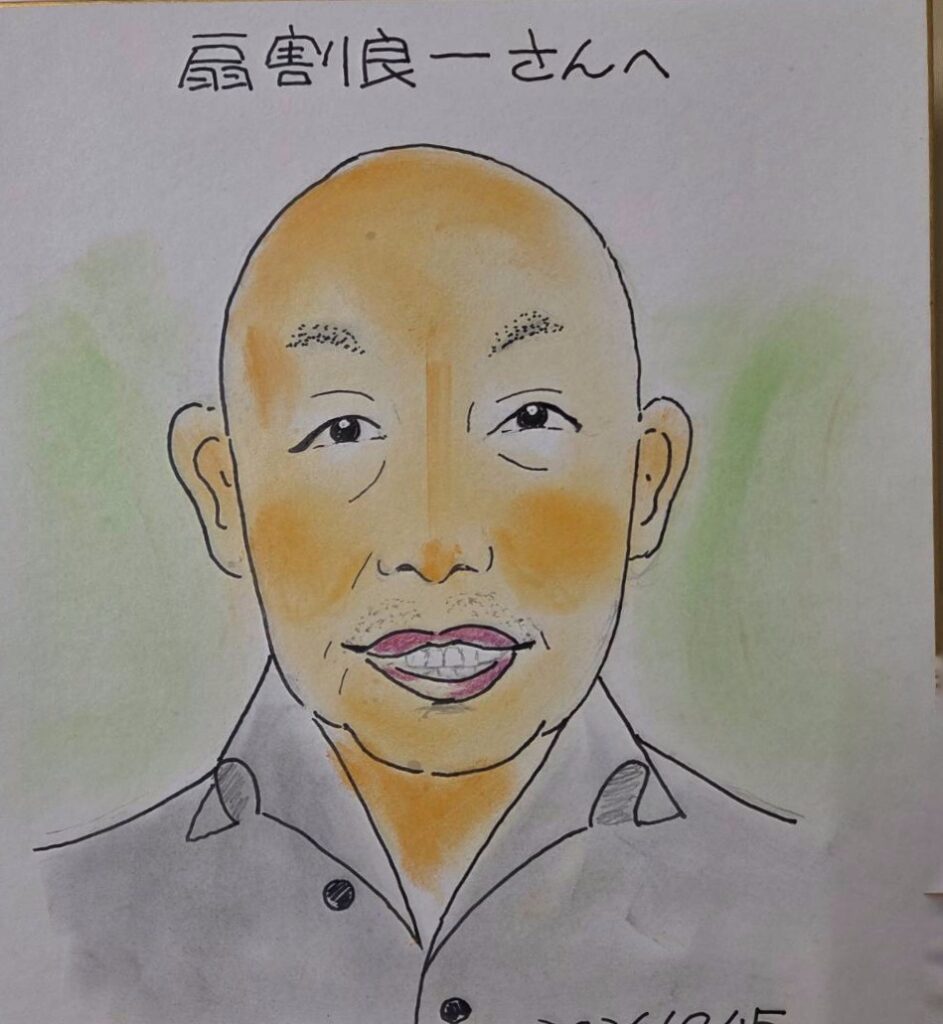 扇割良一さんへ